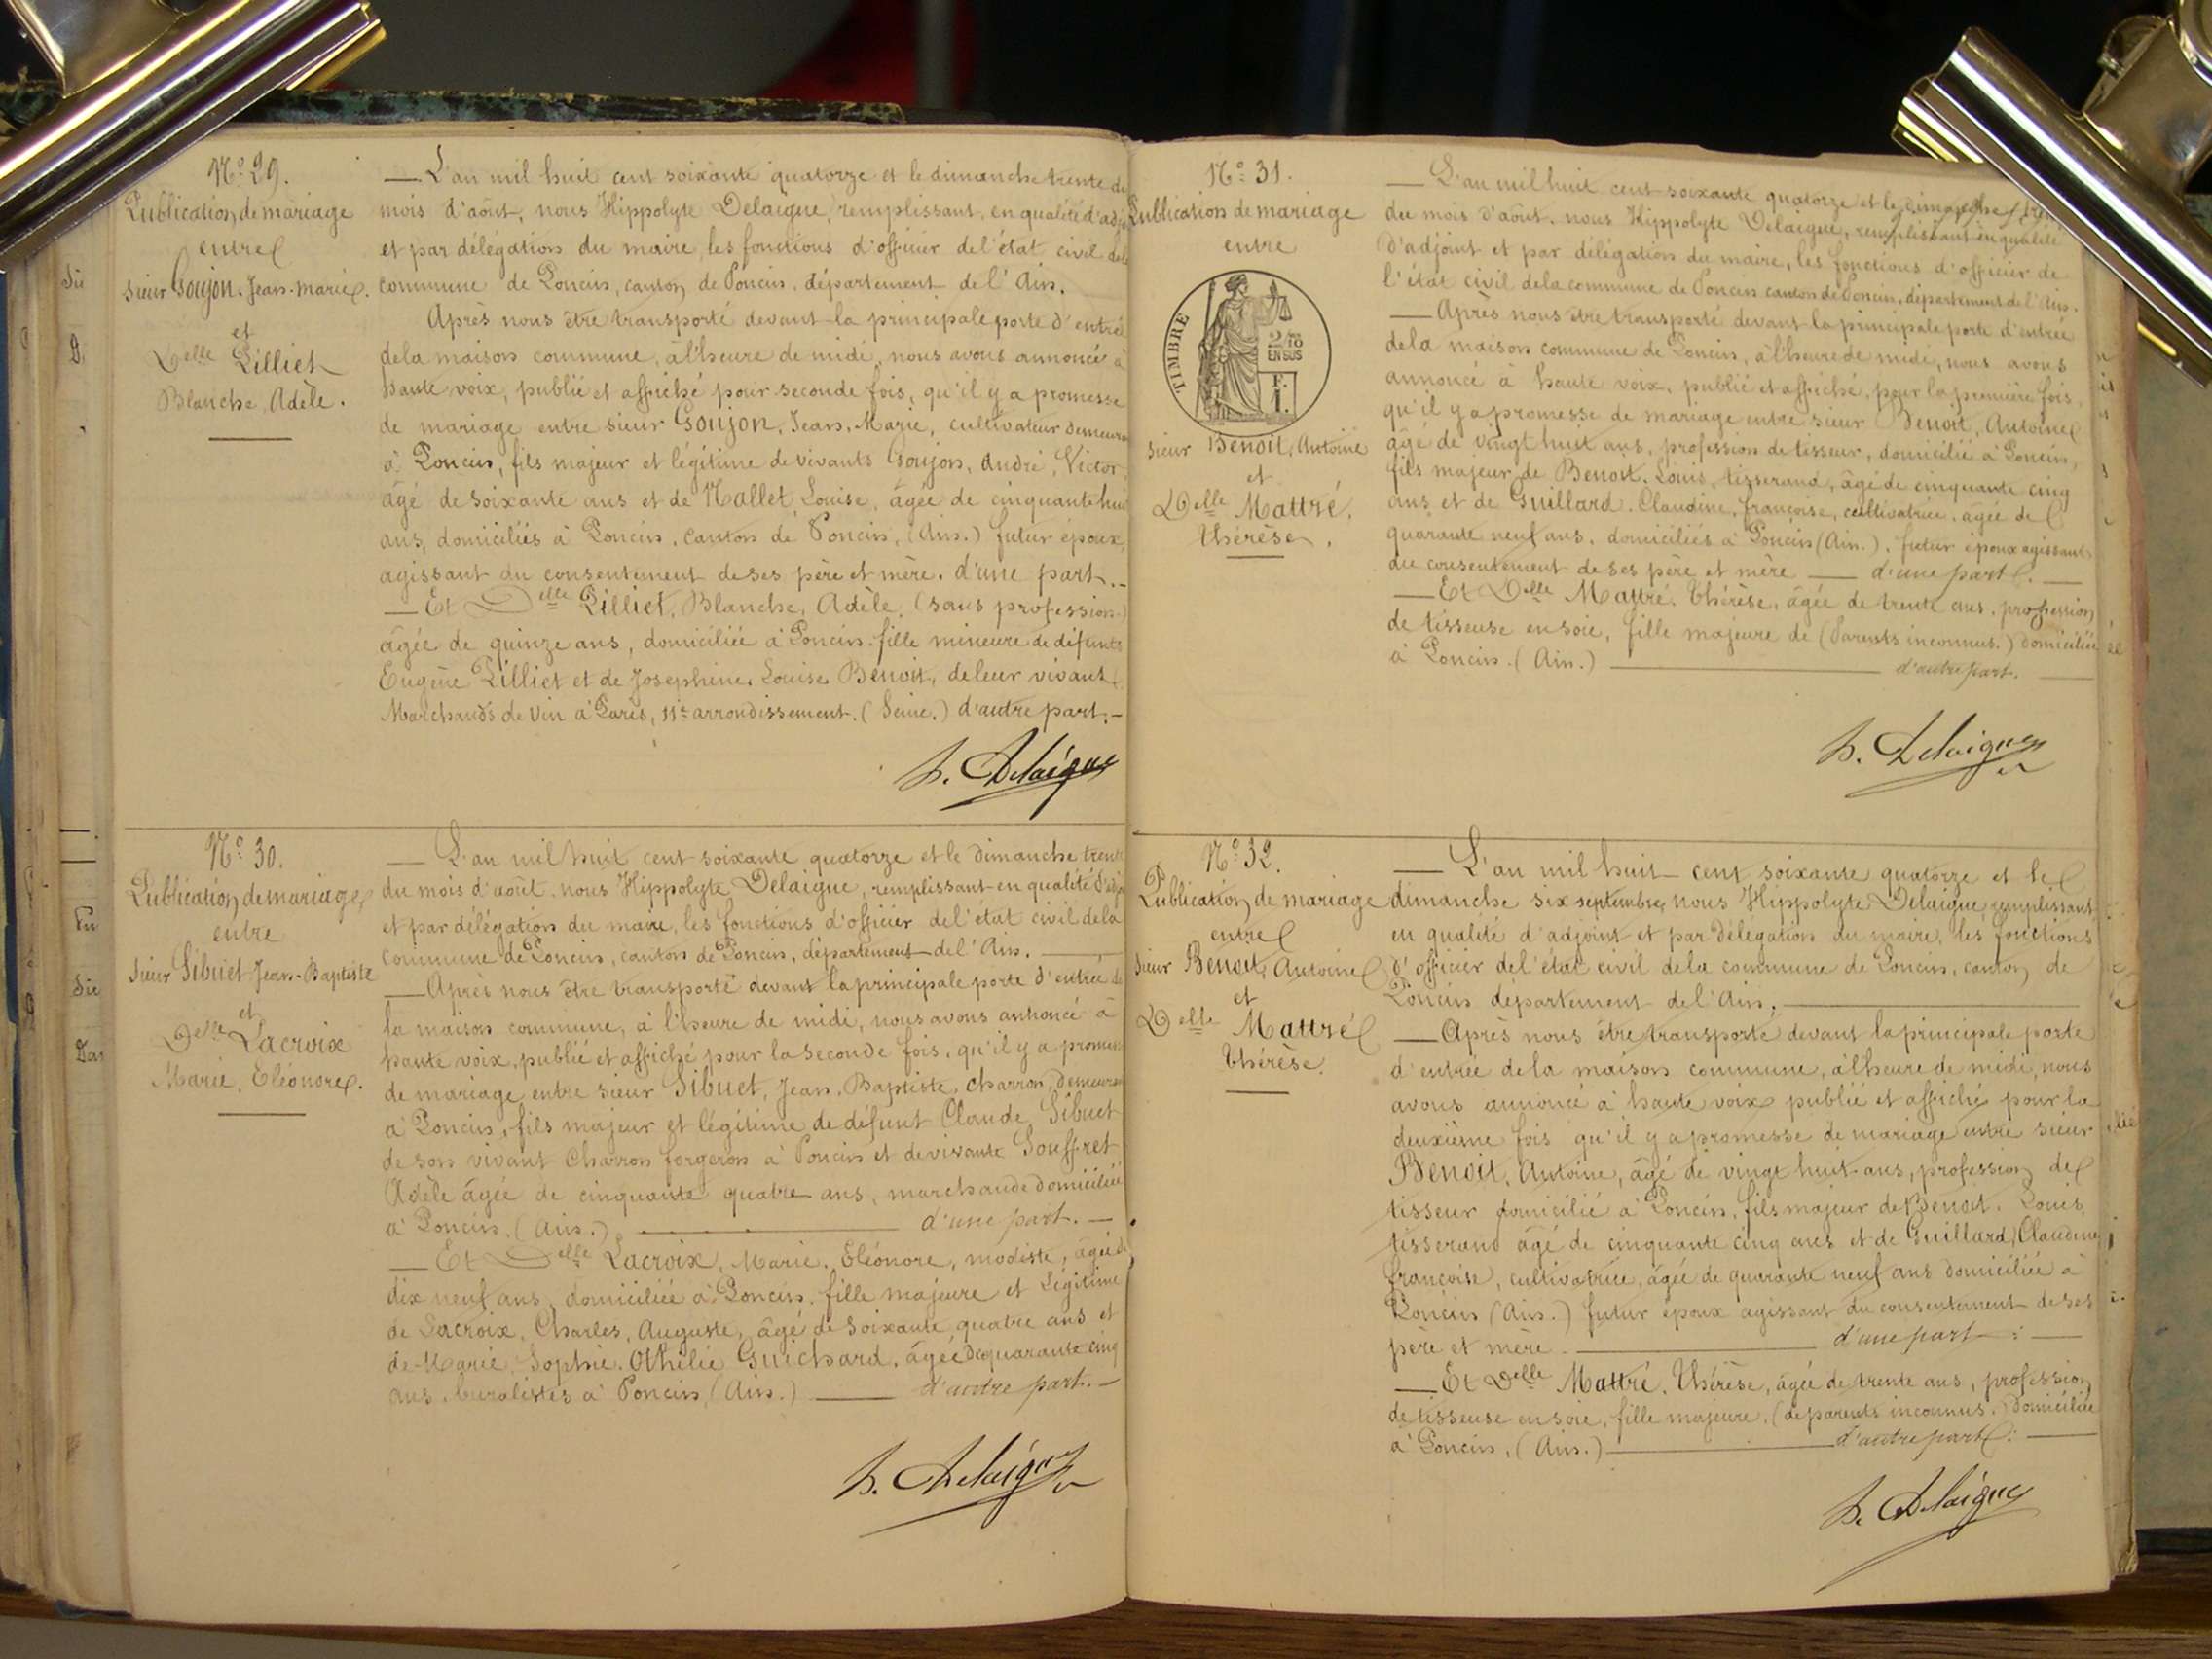 N.º 29.
Publication de mariage
entre
sieur Goujon. Jean-Marie.
et
Delle Pilliet
Blanche, Adèle.
— L'an mil huit cent soixante quatorze et le dimanche trente du
mois d'août, nous Hippolyte Delaigue, remplissant, en qualité d'adj
et par délégation du maire, les fonctions d'officier de l'état civil de la
commune de Poncin, canton de Poncin, département de l'Ain.
Après nous être transporté devant la principale porte d'entrée
de la maison commune, à l'heure de midi, nous avons annoncé à
haute voix, publié et affiché pour seconde fois, qu'il y a promesse
de mariage entre sieur Goujon, Jean, Marie, cultivateur demeura
à Poncin, fils majeur et légitime de vivants Goujon, André, Victor
âgé de soixante ans et de Mallet Louise, âgée de cinquante hui
ans, domiciliés à Poncin, canton de Poncin, (Ain.) futur époux,
agissant du consentement de ses père et mère. d'une part. —
— Et Delle Pilliet, Blanche, Adèle, (sans profession.)
âgée de quinze ans, domiciliée à Poncin. fille mineure de défunts
Eugène Pilliet et de Josephine, Louise Benoit, de leur vivant
Marchands de vin à Paris, 11e arrondissement. (Seine.) d'autre part. —
h. Delaigue
N.º 30.
Publication de mariage
entre
Sieur Sibuet Jean-Baptiste
et
Delle Lacroix
Marie, Eléonore.
— L'an mil huit cent soixante quatorze et le dimanche trente
du mois d'août, nous Hippolyte Delaigue, remplissant en qualité d'adj
et par délégation du maire, les fonctions d'officier de l'état civil de la
commune de Poncin, canton de Poncin, département de l'Ain. —
— Après nous être transporté devant la principale porte d'entrée de
la maison commune, à l'heure de midi, nous avons annoncé à
haute voix, publié et affiché pour la seconde fois, qu'il y a promes
de mariage entre sieur Sibuet, Jean, Baptiste, charron, demeuran
à Poncin, fils majeur et légitime de défunt Claude Sibuet
de son vivant Charron forgeron à Poncin et de vivante Souffret
Adèle âgée de cinquante quatre ans, marchande domiciliée
à Poncin. (Ain.) — d'une part. —
— Et Delle Lacroix, Marie, Eléonore, modiste, âgée de
dix neuf ans, domiciliée à Poncin, fille majeure et légitime
de Lacroix, Charles, Auguste, âgé de soixante quatre ans et
de Marie, Sophie, Othélie Guichard, âgée de quarante cinq
ans, buralistes à Poncin, (Ain.) — d'autre part. —
h. Delaigue
N.º 31.
Publication de mariage
entre
TIMBRE
2/10
EN SUS
F.
1.
sieur Benoit, Antoine
et
Delle Mattré,
Thérèse.
— L'an mil huit cent soixante quatorze et le dimanche tren
du mois d'août, nous Hippolyte Delaigue, remplissant en qualité
d'adjoint et par délégation du maire, les fonctions d'officier de
l'état civil de la commune de Poncin canton de Poncin, département de l'Ain.
— Après nous être transporté devant la principale porte d'entrée
de la maison commune de Poncin, à l'heure de midi, nous avons
annoncé à haute voix, publié et affiché, pour la première fois,
qu'il y a promesse de mariage entre sieur Benoit, Antoine
âgé de vingt huit ans, profession de tisseur, domicilié à Poncin,
fils majeur de Benoit, Louis, tisserand, âgé de cinquante cinq
ans et de Guillard, Claudine, françoise, cultivatrice, âgée de
quarante neuf ans, domiciliés à Poncin (Ain.), futur époux agissant
du consentement de ses père et mère — d'une part. —
— Et Delle Mattré, Thérèse, âgée de trente ans, profession
de tisseuse en soie, fille majeure de (Parents inconnus.) domiciliée
à Poncin. (Ain.) — d'autre part. —
h. Delaigue
N.º 32.
Publication de mariage
entre
Sieur Benoit, Antoine
et
Delle Mattré
Thérèse.
— L'an mil huit cent soixante quatorze et le
dimanche six septembre, nous Hippolyte Delaigue, remplissant
en qualité d'adjoint et par délégation du maire, les fonctions
d'officier de l'état civil de la commune de Poncin, canton de
Poncin département de l'Ain. —
— Après nous être transporté devant la principale porte
d'entrée de la maison commune, à l'heure de midi, nous
avons annoncé à haute voix publié et affiché pour la
deuxième fois qu'il y a promesse de mariage entre sieur
Benoit, Antoine, âgé de vingt huit ans, profession de
tisseur domicilié à Poncin, fils majeur de Benoit, Louis,
tisserand âgé de cinquante cinq ans et de Guillard, Claudine
françoise, cultivatrice, âgée de quarante neuf ans domiciliée à
Poncin (Ain.) futur époux agissant du consentement de ses
père et mère. — d'une part : —
— Et Delle Mattré, Thérèse, âgée de trente ans, profession
de tisseuse en soie, fille majeure, (de parents inconnus.) domiciliée
à Poncin, (Ain.) — d'autre part : —
h. Delaigue